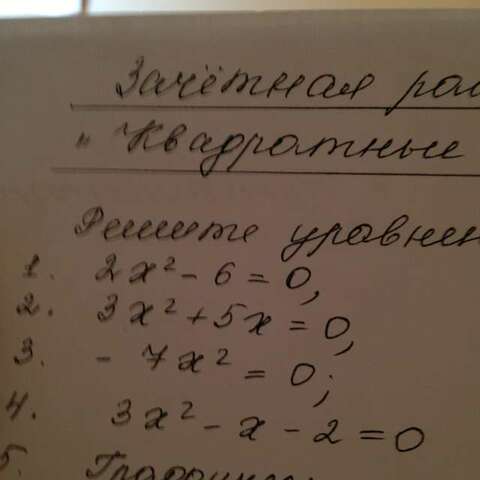 Зачётная
" Квадратные
Решите
1. 2x² - 6 = 0,
2. 3x² + 5x = 0,
3. - 7x² = 0;
4. 3x² - x - 2 = 0
5.